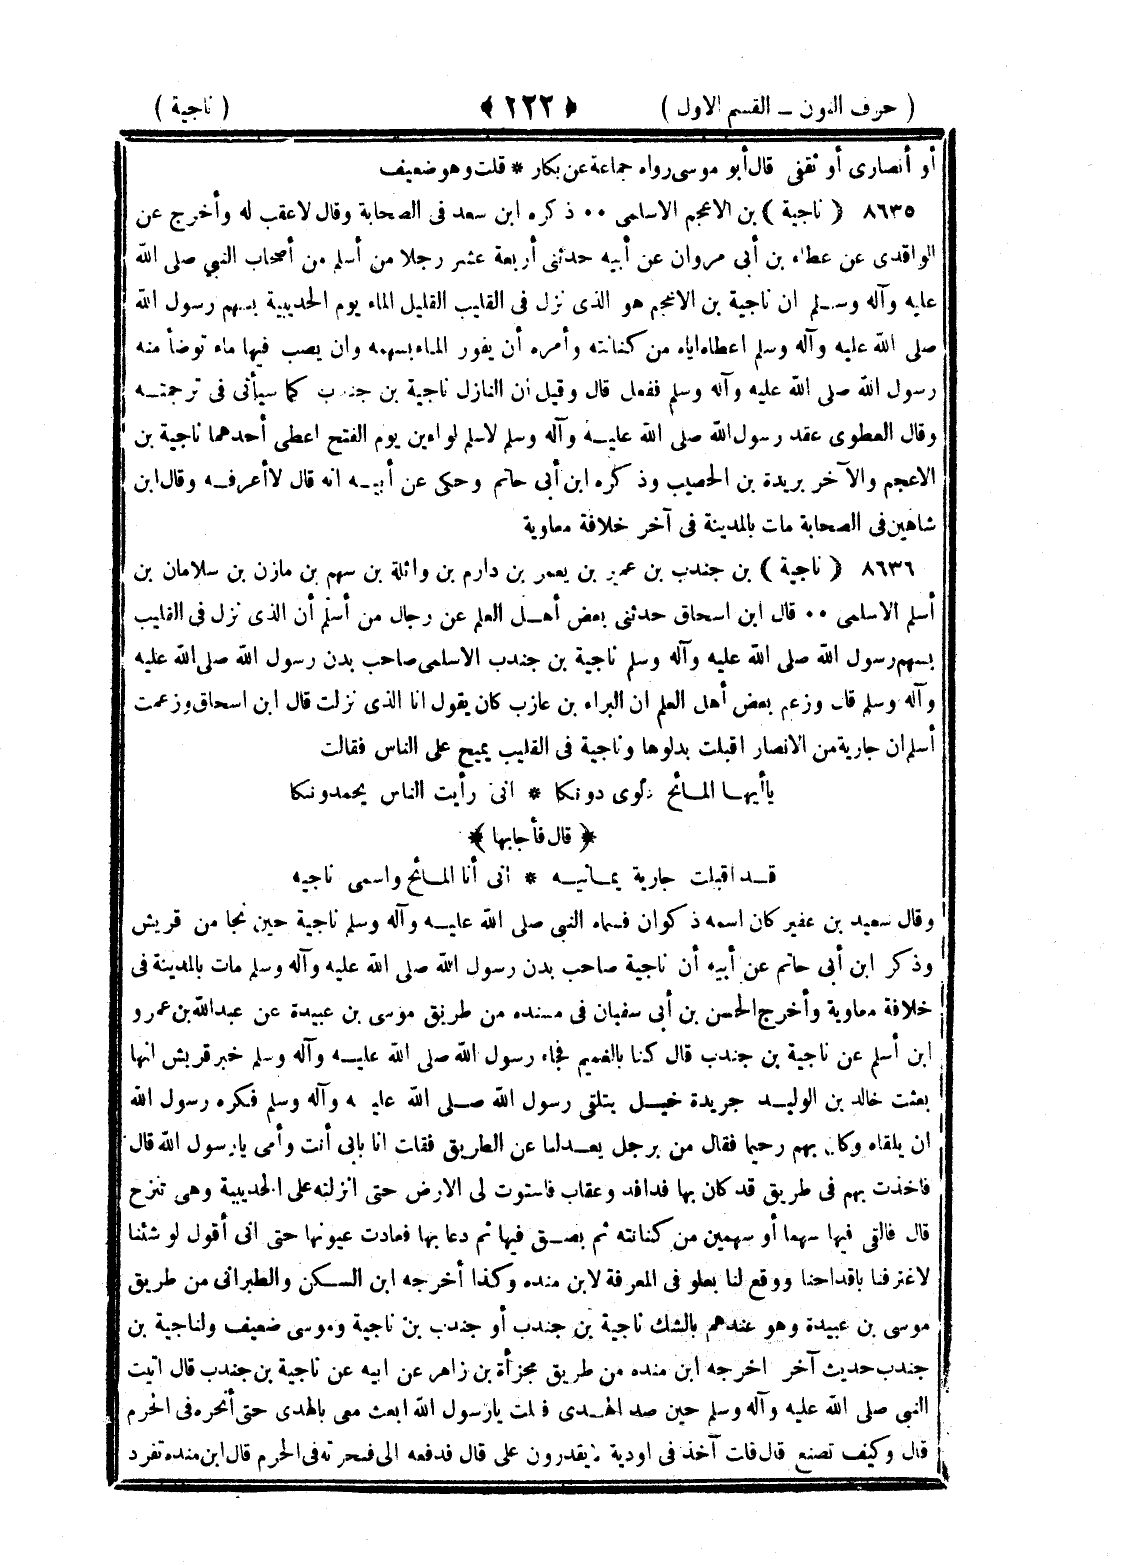 ( حرف النون – القسم الاول ) ﴿ ٢٢٢ ﴾ ( ناجية )
أو أنصارى أو ثقفى قال أبو موسى رواه جماعة عن بكار * قلت وهو ضعيف
٨٦٣٥ ( ناجية ) بن الاعجم الاسلمى ٠٠ ذكره ابن سعد فى الصحابة وقال لا عقب له وأخرج عن
الواقدى عن عطاء بن أبى مروان عن أبيه حدثنى أربعة عشر رجلا من أسلم من أصحاب النبي صلى الله
عليه وآله وسلم ان ناجية بن الاعجم هو الذى نزل فى القليب القليل الماء يوم الحديبية بسهم رسول الله
صلى الله عليه وآله وسلم اعطاه اياه من كنانته وأمره أن يفور الماء بسهمه وان يصب فيها ماء توضأ منه
رسول الله صلى الله عليه وآله وسلم ففعل قال وقيل ان النازل ناجية بن جندب كما سيأتى فى ترجمته
وقال العطوى عقد رسول الله صلى الله عليه وآله وسلم لاسلم لواءين يوم الفتح اعطى أحدهما ناجية بن
الاعجم والآخر بريدة بن الحصيب وذكره ابن أبى حاتم وحكى عن أبيه انه قال لا أعرفه وقال ابن
شاهين فى الصحابة مات بالمدينة فى آخر خلافة معاوية
٨٦٣٦ ( ناجية ) بن جندب بن عمير بن يعمر بن دارم بن واثلة بن سهم بن مازن بن سلامان بن
أسلم الاسلمى ٠٠ قال ابن اسحاق حدثنى بعض أهل العلم عن رجال من أسلم أن الذى نزل فى القليب
بسهم رسول الله صلى الله عليه وآله وسلم ناجية بن جندب الاسلمى صاحب بدن رسول الله صلى الله عليه
وآله وسلم قال وزعم بعض أهل العلم ان البراء بن عازب كان يقول انا الذى نزلت قال ابن اسحاق وزعمت
أسلم ان جارية من الانصار اقبلت بدلوها وناجية فى القليب يميح على الناس فقالت
ياأيها المائح دلوى دونكا * انى رأيت الناس يحمدونكا
﴿ قال فأجابها ﴾
قد اقبلت جارية يمانيه * انى أنا المائح واسمى ناجيه
وقال سعيد بن عفير كان اسمه ذكوان فسماه النبى صلى الله عليه وآله وسلم ناجية حين نجا من قريش
وذكر ابن أبى حاتم عن أبيه أن ناجية صاحب بدن رسول الله صلى الله عليه وآله وسلم مات بالمدينة فى
خلافة معاوية وأخرج الحسن بن أبى سفيان فى مسنده من طريق موسى بن عبيدة عن عبد الله بن عمرو
ابن أسلم عن ناجية بن جندب قال كنا بالغميم فجاء رسول الله صلى الله عليه وآله وسلم خبر قريش انها
بعثت خالد بن الوليد جريدة خيل يتلقى رسول الله صلى الله عليه وآله وسلم فكره رسول الله
ان يلقاه وكان بهم رحيما فقال من برجل يعدلنا عن الطريق فقلت انا بابى أنت وأمى يارسول الله قال
فاخذت بهم فى طريق قد كان بها فدافد وعقاب فاستوت لى الارض حتى انزلته على الحديبية وهى تنزح
قال فالقى فيها سهما أو سهمين من كنانته ثم بصق فيها ثم دعا بها فعادت عيونها حتى انى أقول لو شئنا
لاغترفنا باقداحنا ووقع لنا بعلو فى المعرفة لابن منده وكذا أخرجه ابن السكن والطبرانى من طريق
موسى بن عبيدة وهو عندهم بالشك ناجية بن جندب أو جندب بن ناجية وموسى ضعيف ولناجية بن
جندب حديث آخر اخرجه ابن منده من طريق مجزأة بن زاهر عن ابيه عن ناجية بن جندب قال اتيت
النبى صلى الله عليه وآله وسلم حين صد الهدى فقلت يارسول الله ابعث معى بالهدى حتى أنحره فى الحرم
قال وكيف تصنع قال قلت آخذ فى اودية لايقدرون على قال فدفعه الى فنحرته فى الحرم قال ابن منده تفرد